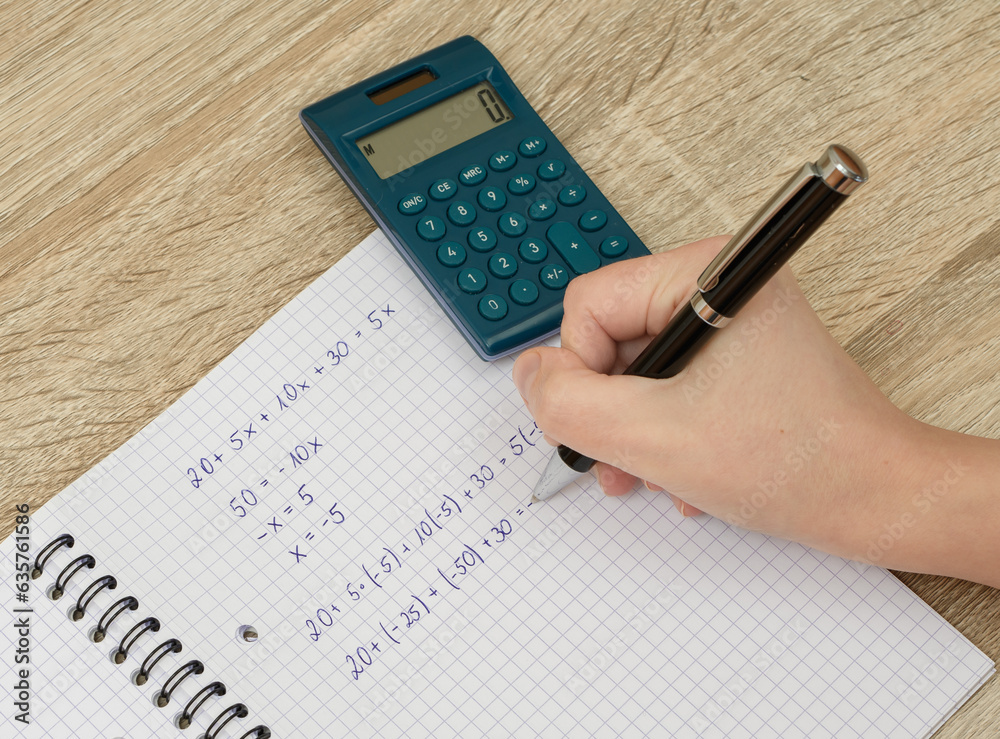 M 0.
ON/C CE MRC M- M+
7 8 9 % √
4 5 6 × ÷
1 2 3 + −
0 · +/- =
20 + 5x + 10x + 30 = 5x
50 = -10x
-x = 5
x = -5
20 + 5·(-5) + 10(-5) + 30 = 5(-5
20 + (-25) + (-50) + 30 = -
Adobe Stock | #635761586